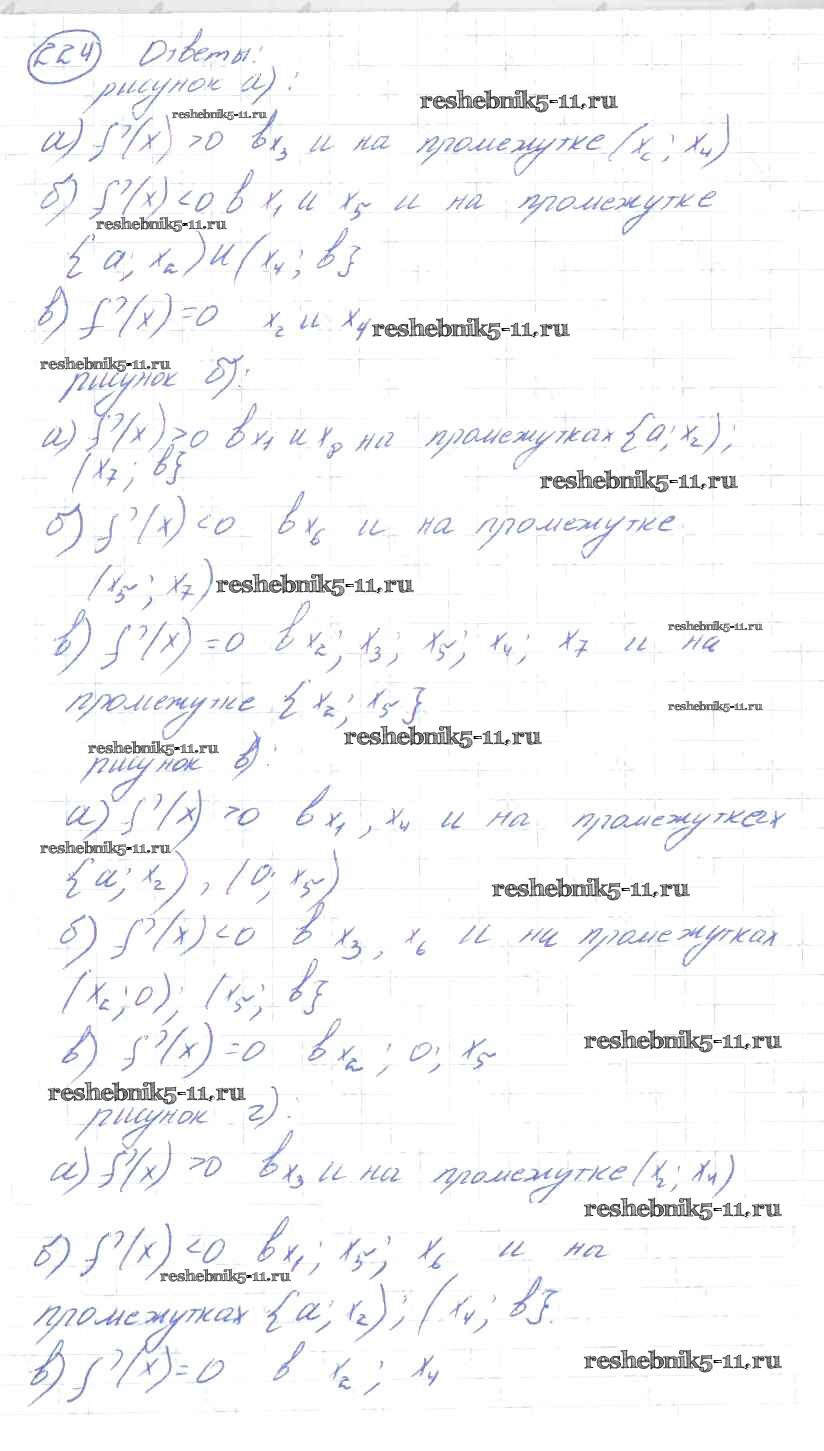 224 Ответы:
рисунок а):
reshebnik5-11.ru
reshebnik5-11.ru
а) f'(x) >0 в x₃ и на промежутке (x₂; x₄)
б) f'(x) <0 в x₁ и x₅ и на промежутке
reshebnik5-11.ru
{a; x₂) и (x₄; в}
в) f'(x) =0 x₂ и x₄
reshebnik5-11.ru
reshebnik5-11.ru
рисунок б):
а) f'(x) >0 в x₁ и x₈ на промежутках {a; x₂);
(x₇; в}
reshebnik5-11.ru
б) f'(x) <0 в x₆ и на промежутке
(x₅; x₇)
reshebnik5-11.ru
в) f'(x) =0 в x₂; x₃; x₅; x₄; x₇ и на
reshebnik5-11.ru
промежутке {x₂; x₅}
reshebnik5-11.ru
reshebnik5-11.ru
reshebnik5-11.ru
рисунок в):
а) f'(x) >0 в x₁, x₄ и на промежутках
reshebnik5-11.ru
{a; x₂), (0; x₅)
reshebnik5-11.ru
б) f'(x) <0 в x₃, x₆ и на промежутках
(x₂; 0); (x₅; в}
в) f'(x) =0 в x₂; 0; x₅
reshebnik5-11.ru
reshebnik5-11.ru
рисунок г):
а) f'(x) >0 в x₃ и на промежутке (x₂; x₄)
reshebnik5-11.ru
б) f'(x) <0 в x₁; x₅; x₆ и на
reshebnik5-11.ru
промежутках {a; x₂); (x₄; в}.
в) f'(x) =0 в x₂; x₄
reshebnik5-11.ru